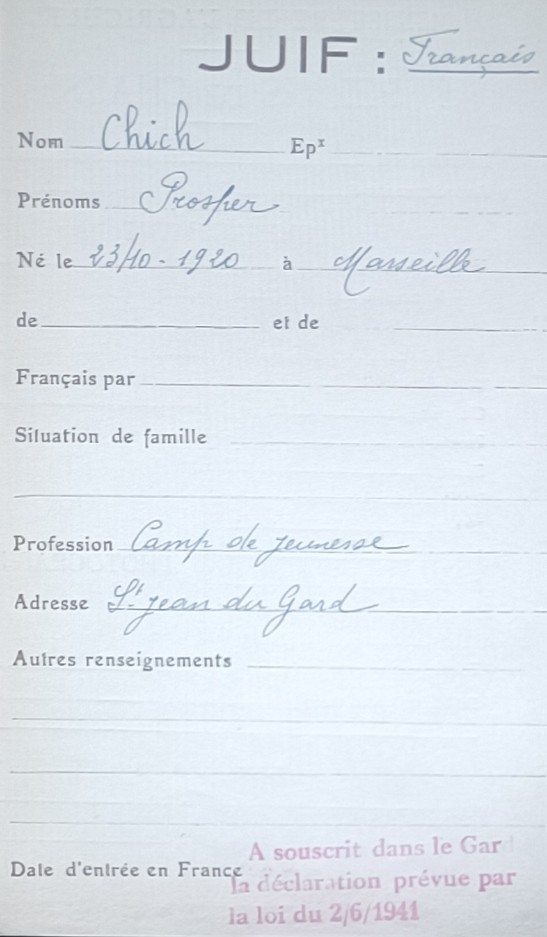 JUIF : Français
Nom Chich Epx
Prénoms Prosper
Né le 23/10 - 1920 à Marseille
de et de
Français par
Situation de famille
Profession Camp de jeunesse
Adresse St jean du Gard
Autres renseignements
A souscrit dans le Gar
Date d'entrée en France la déclaration prévue par
la loi du 2/6/1941